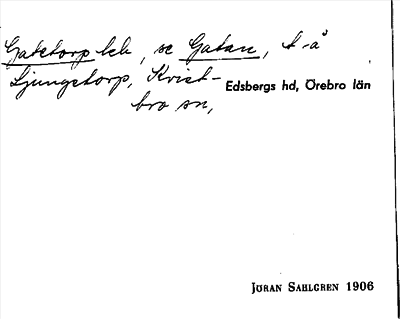 Gatetorp lek, se Gatan, t. å
Ljungstorp, Kvist-
bro sn, Edsbergs hd, Örebro län
JÖRAN SAHLGREN 1906